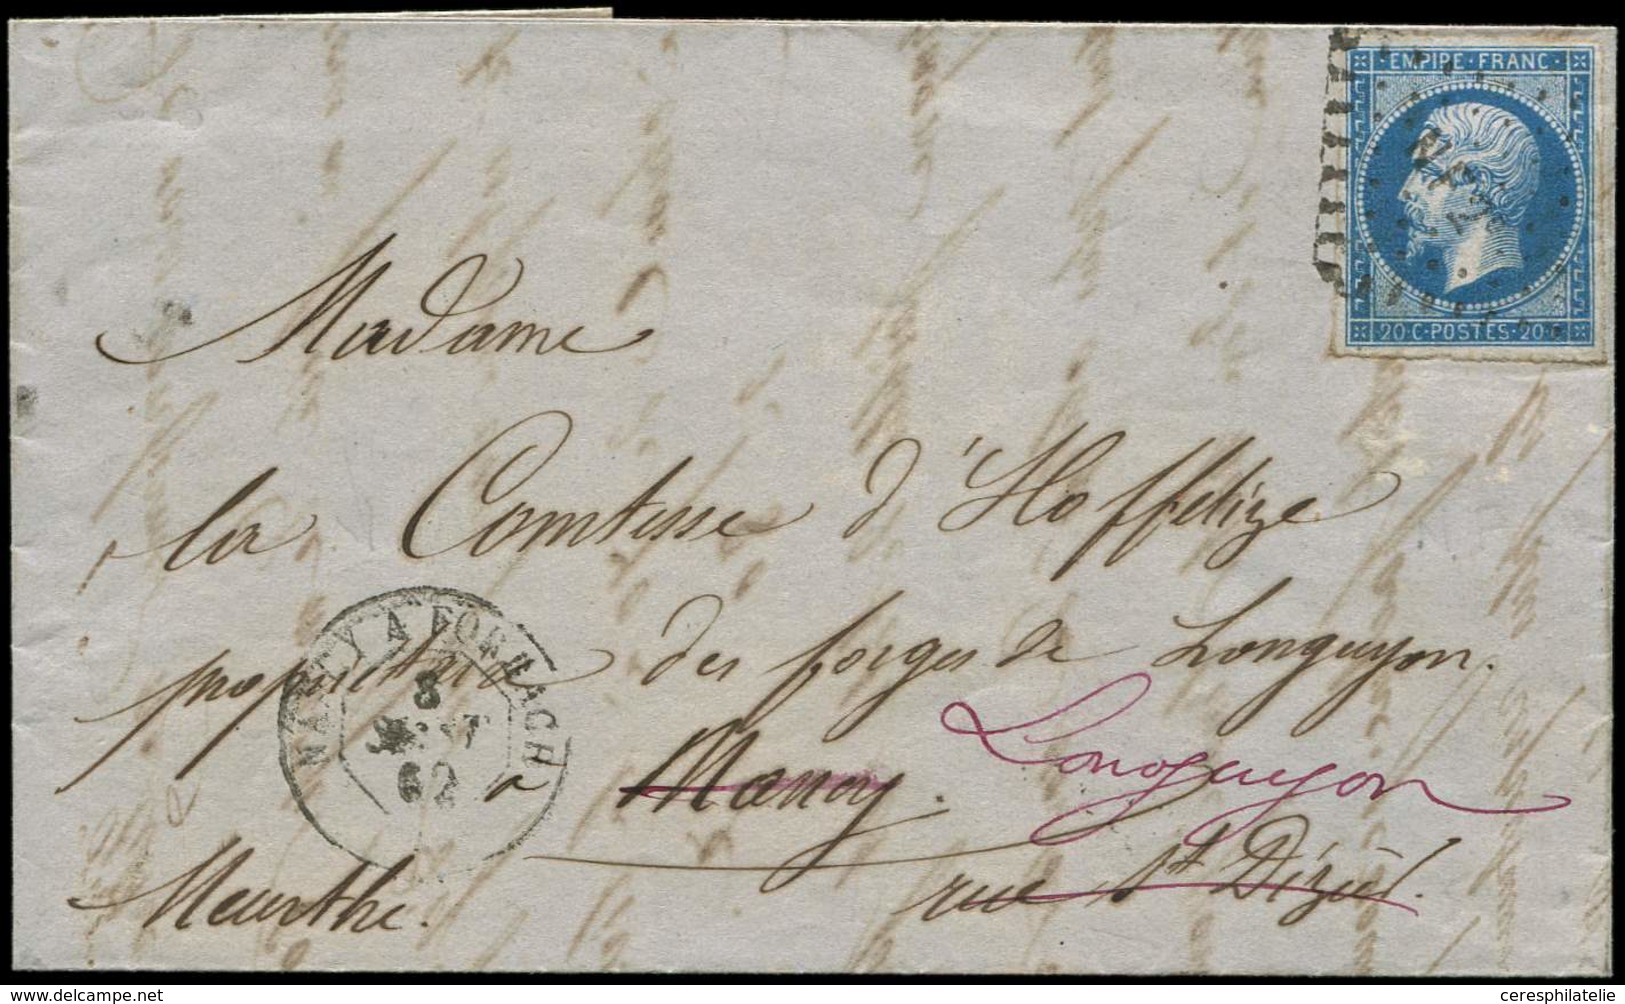 EMPIRE · FRANC ·
20 · C · POSTES · 20 · C
Madame
la Comtesse d'Hoffelize
propriétaire des forges de Longuyon.
NANCY A FORBACH
8
62
à Nancy. Longuyon
rue St Dizier.
Meurthe.
ceresphilatelie